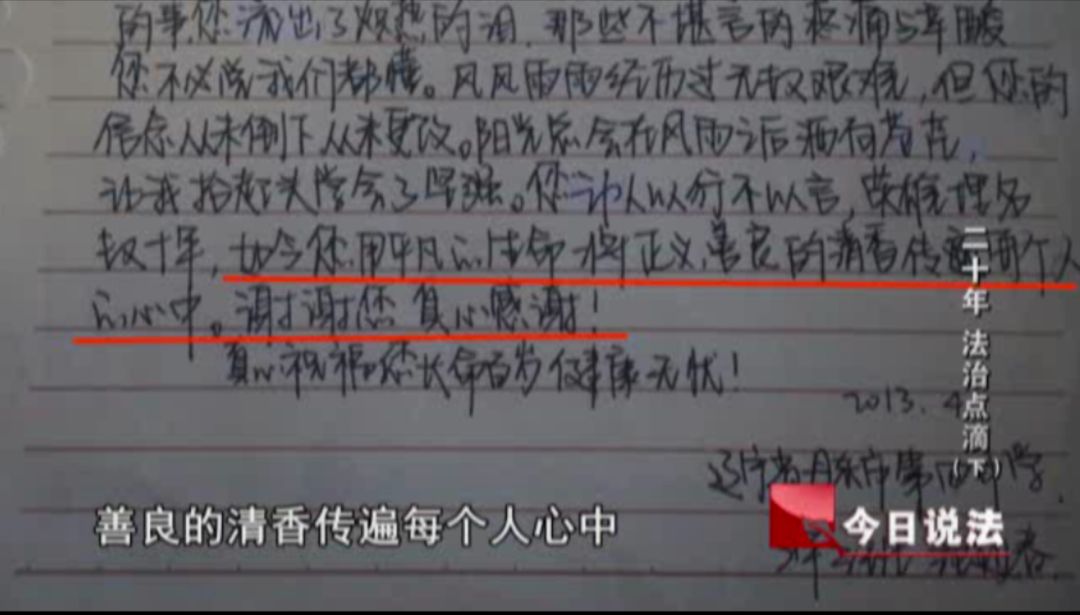 的事,您流出了炽热的泪,那些不堪言的疼痛与辛酸
您不必说我们都懂。风风雨雨经历过无数艰难,但您的
信念从未倒下从未更改。阳光总会在风雨之后洒向
让我抬起头学会了坚强。您让人以行不以言,荣耀埋名
数十年,如今您用平凡的生命将正义善良的清香传遍每个人
的心中。谢谢您 真心感谢!
真心祝福您长命百岁健康无忧!
2013.4
辽宁省丹东市第四中学
善良的清香传遍每个人心中
二十年 法治点滴(下)
今日说法